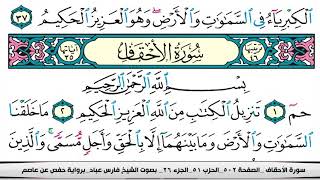 ٱلْكِبْرِيَآءُ فِى ٱلسَّمَٰوَٰتِ وَٱلْأَرْضِ ۖ وَهُوَ ٱلْعَزِيزُ ٱلْحَكِيمُ ٣٧
سُورَةُ ٱلْأَحْقَافِ
بِسْمِ ٱللَّهِ ٱلرَّحْمَٰنِ ٱلرَّحِيمِ
حمٓ ١ تَنزِيلُ ٱلْكِتَٰبِ مِنَ ٱللَّهِ ٱلْعَزِيزِ ٱلْحَكِيمِ ٢ مَا خَلَقْنَا
ٱلسَّمَٰوَٰتِ وَٱلْأَرْضَ وَمَا بَيْنَهُمَآ إِلَّا بِٱلْحَقِّ وَأَجَلٍ مُّسَمًّى ۚ وَٱلَّذِينَ
سورة الأحقاف_الصفحة ٥٠٢_الحزب ٥١_الجزء ٢٦_ بصوت الشيخ فارس عباد_برواية حفص عن عاصم